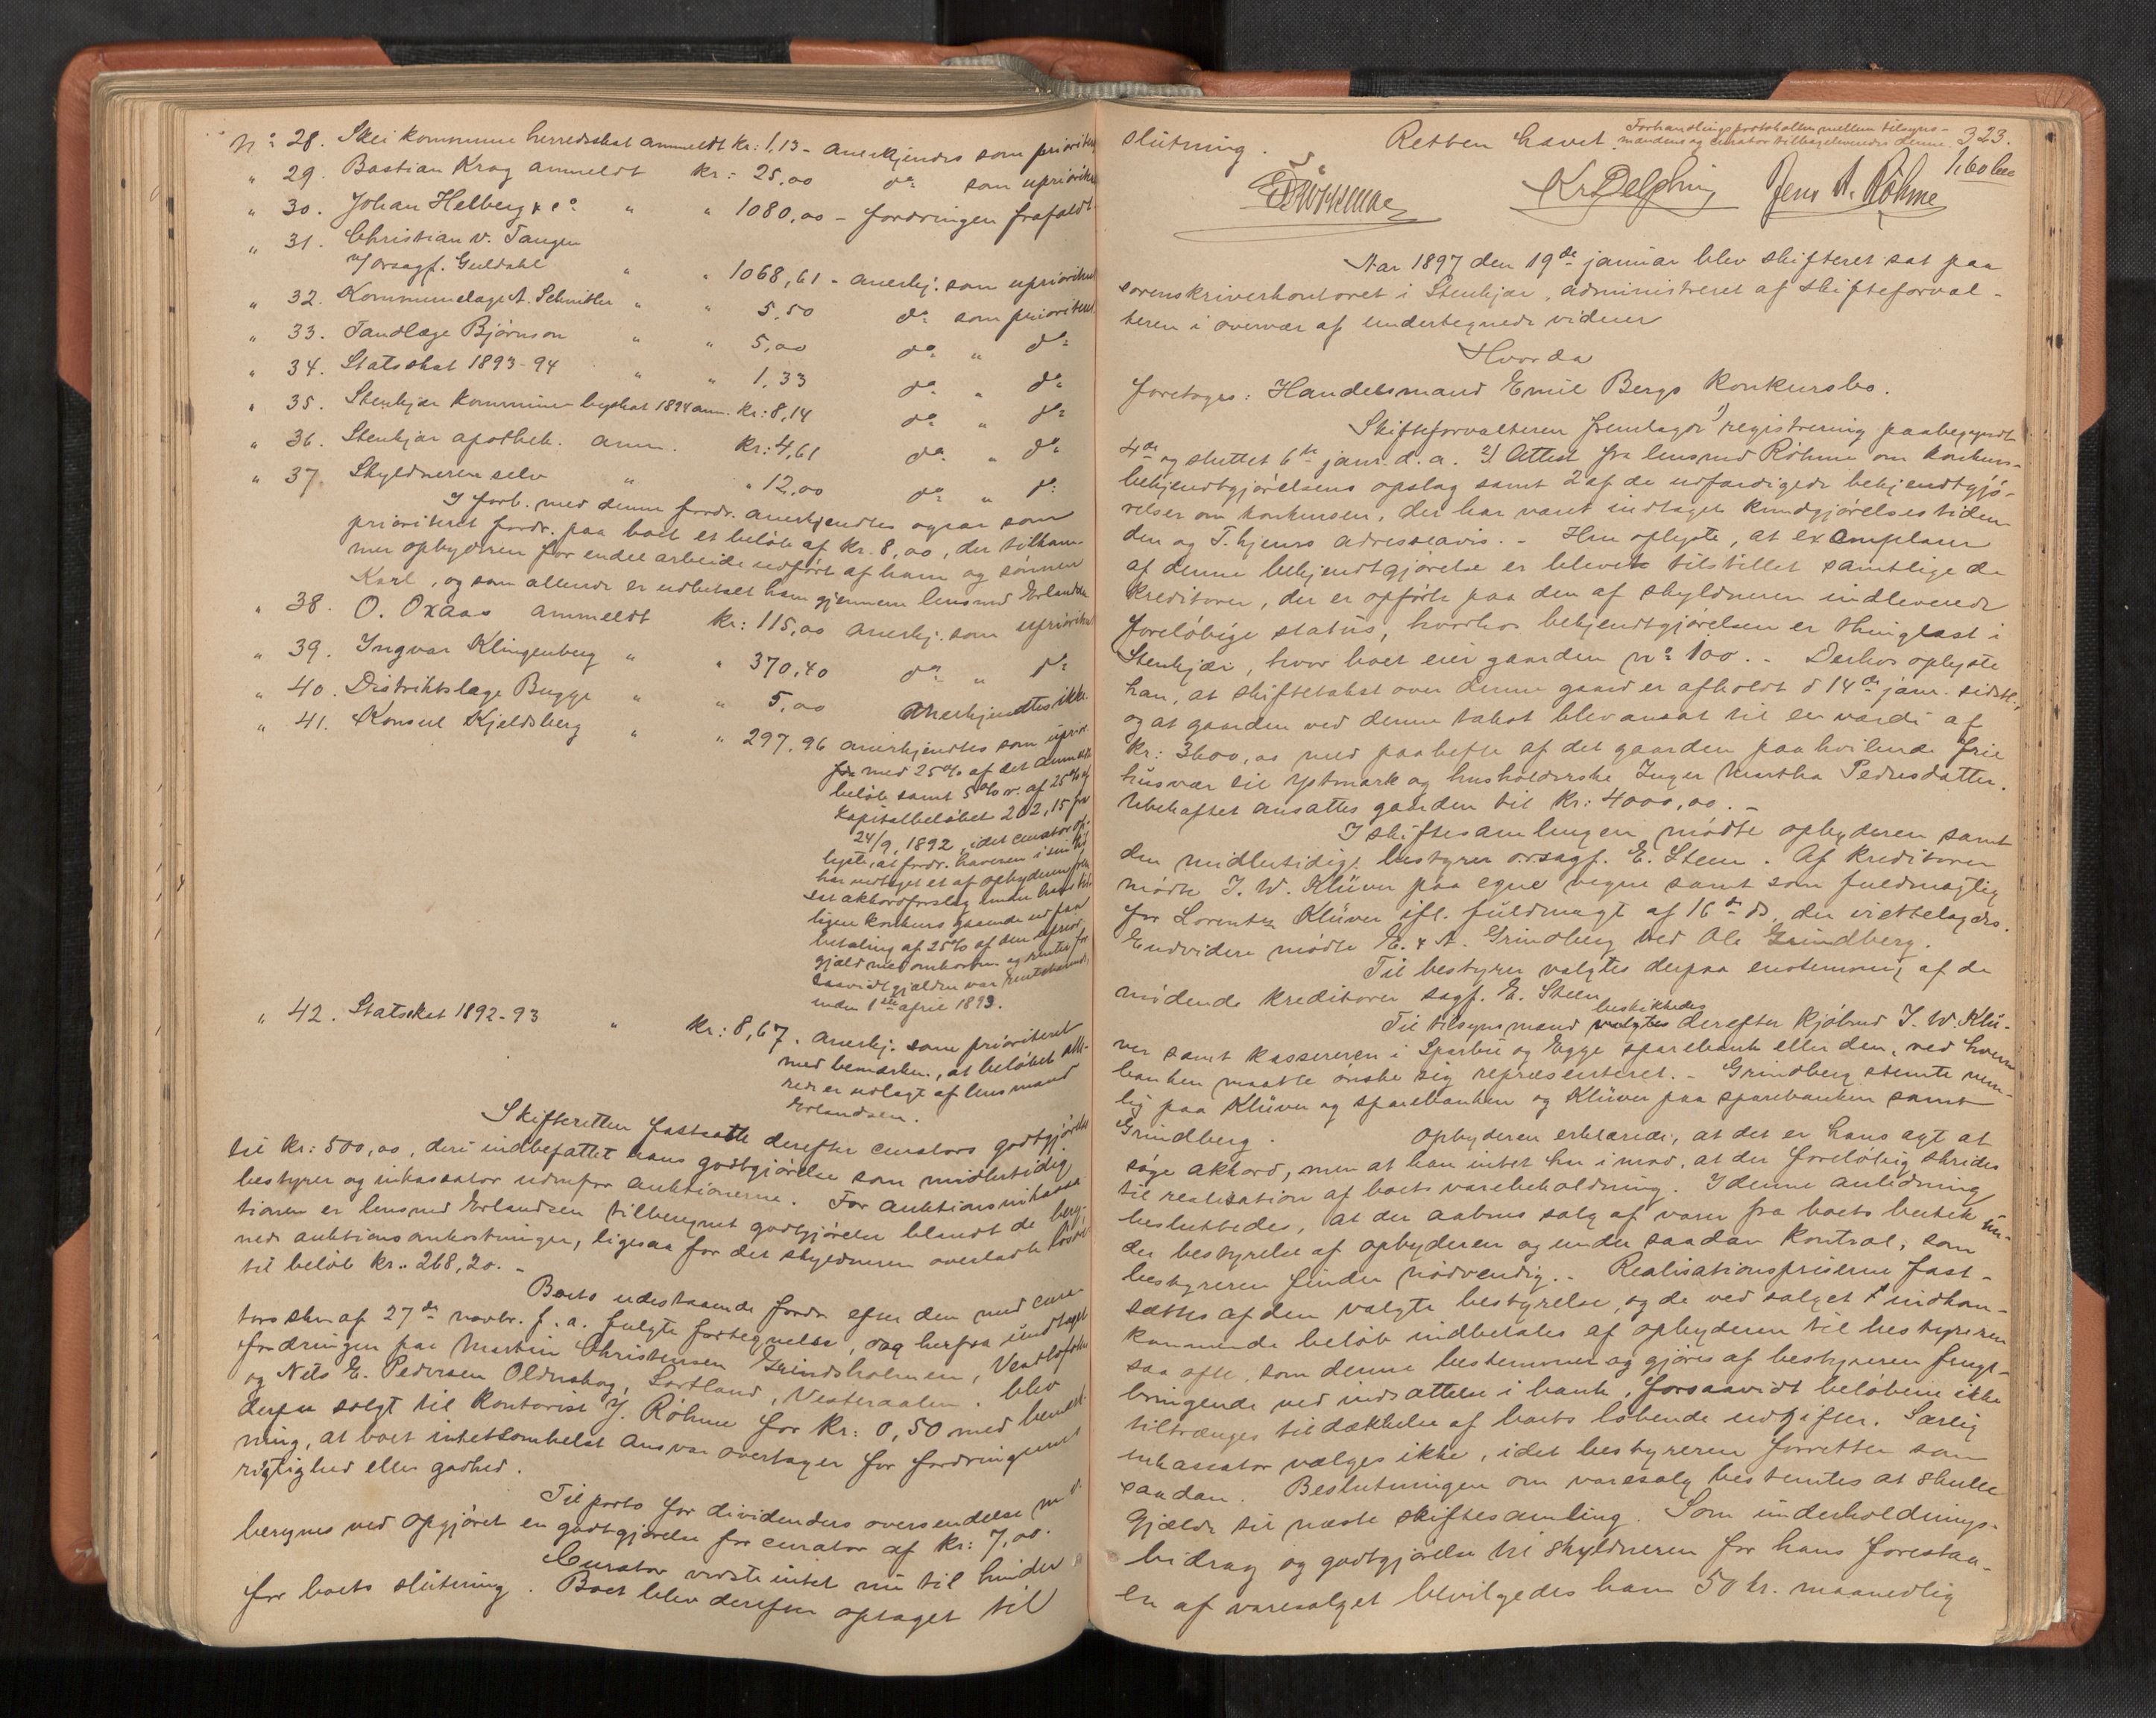 No 28. Skei kommune herredsskat anmeldt kr: 1,13 - anerkjendes som prioritet
" 29. Bastian Krog anmeldt kr: 25,00 do som uprioritet
" 30. Johan Helberg & Co " " 1080,00 - fordringen frafaldt
" 31. Christian v. Tangen
v/ orsagf. Guldahl " " 1068,61 - anerkj. som uprioritet
" 32. Kommunelæge A. Schnitler " " 5,50 do som prioritet
" 33. Tandlæge Bjørnson " " 5,00 do " do
" 34. Statsskat 1893-94 " " 1,33 do " do
" 35. Stenkjær kommune byskat 1894 anm. kr: 8,14 do " do
" 36. Stenkjær apothek. anm. kr: 4,61 do " do
" 37. Skyldneren selv " " 12,00 do " do
I forb. med denne fordr. anerkjendtes ogsaa som
prioriteret fordr. paa boet et beløb af kr. 8,00, der tilkom-
mer opbyderen for endel arbeide udført af ham og sønnen
Karl, og som allerede er udbetalt ham gjennem lensmd Erlandsen
" 38. O. Oxaas anmeldt kr: 115,00 anerkj. som uprioritet
" 39. Ingvar Klingenberg " " 370,40 do " do
" 40. Distriktslæge Bugge " " 5,00 anerkjendtes ikke
" 41. Konsul Kjeldsberg " " 297,96 anerkjendtes som uprior.
med 25% af det anmeldte
beløb samt 5% r. af 25% af
kapitalbeløbet 202,15 fra
24/9 1892, idet curator op-
lyste, at fordr. haveren i sin tid
har vedtaget et af opbyderen frem-
sat akkordforslag under hans tid-
ligere konkurs gaaende ud paa
betaling af 25% af den uprior.
gjæld med omkostn. og renter for
saavidt gjælden var rentebærende,
inden 1ste april 1893.
" 42. Statsskat 1892-93 " kr: 8,67. anerkj. som prioriteret
med bemærkn., at beløbet alle-
rede er udlagt af lensmand
Erlandsen.
Skifteretten fastsatte derefter curators godtgjørelse
til kr: 500,00, deri indbefattet hans godtgjørelse som midlertidig
bestyrer og inkassator udenfor auktionerne. For auktionsinkassa-
tionen er lensmd Erlandsen tilberegnet godtgjørelse blandt de bereg-
nede auktionsomkostninger, ligesaa for det skyldneren overladte løsøre
til beløb kr. 268,20. -
Boets udestaaende fordr. efter den med cura-
tors skr. af 27de novbr. f. a. fulgte fortegnelse, dog herfra undtaget
fordringen paa Martin Christensen Grindsholmen, Vestlofoten
og Nils E. Pedersen Oldnskog, Sortland, Vesteraalen, blev
derpaa solgt til kontorist J. Røhme for kr: 0,50 med bemærk-
ning, at boet intetsomhelst ansvar overtager for fordringernes
rigtighed eller godhed.
Til porto for dividenders oversendelse m. v.
beregnes ved opgjøret en godtgjørelse for curator af kr: 7,00.
Curator vidste intet nu til hinder
for boets slutning. Boet blev derefter optaget til
slutning. Retten hævet. Forhandlingsprotokollen mellem tilsyns- 323.
mændene og curator tilbageleveredes denne.
1,60 bet
Kr Delphin Jens A. Røhme
Aar 1897 den 19de januar blev skifteret sat paa
sorenskriverkontoret i Stenkjær, administreret af skifteforval-
teren i overvær af undertegnede vidner
Hvorda
foretoges: Handelsmand Emil Bergs konkursbo.
Skifteforvalteren fremlagde 1) registrering paabegyndt
4de og sluttet 6te janr. d. a. 2) Attest fra lensmd Røhme om konkurs-
bekjendtgjørelsens opslag samt 2 af de udfærdigede bekjendtgjø-
relser om konkursen, der har været indtaget kundgjørelsestiden-
den og T.hjems adresseavis. - Han oplyste, at exemplarer
af denne bekjendtgjørelse er blevet tilstillet samtlige de
kreditorer, der er opførte paa den af skyldneren indleverede
foreløbige status, hvorhos bekjendtgjørelsen er thinglæst i
Stenkjær, hvor boet eier gaarden No 100. - Derhos oplyste
han, at skiftetakst over denne gaard er afholdt d 14de janr. sidstl.,
og at gaarden ved denne takst blev ansat til en værdi af
kr: 3600,00 med paahefte af det gaarden paahvilende frie
husvær til Ystmark og husholderske Inger Martha Pedersdatter.
Ubeheftet ansattes gaarden til kr: 4000,00. -
I skiftesamlingen mødte opbyderen samt
den midlertidige bestyrer orsagf. E. Steen. Af kreditorer
mødte J. W. Klüver paa egne vegne samt som fuldmægtig
for Lorentz Klüver ifl. fuldmagt af 16de ds, der irettelagdes.
Endvidere mødte E. & A. Grindberg ved Ole Grindberg.
Til bestyrer valgtes derpaa enstemmig af de
mødende kreditorer sagf. E. Steen
beskikkedes
Til tilsynsmænd valgtes derefter kjøbmd J. W. Klü-
ver samt kassereren i Sparbu og Egge sparebank eller den, ved hvem
banken maatte ønske sig repræsenteret. - Grindberg stemte nem-
lig paa Klüver og sparebanken og Klüver paa sparebanken samt
Grindberg. Opbyderen erklærede, at det er hans agt at
søge akkord, men at han intet har imod, at der foreløbig skrides
til realisation af boets varebeholdning. I denne anledning
besluttedes, at der aabnes salg af varer fra boets butik un-
der bestyrelse af opbyderen og under saadan kontrol, som
bestyreren finder nødvendig. - Realisationspriserne fast-
sættes af den valgte bestyrelse, og de ved salget indkom-
kommende beløb indbetales af opbyderen til bestyreren
saa ofte, som denne bestemmer og gjøres af bestyreren frugt-
bringende ved indsættelse i bank, forsaavidt beløbene ikke
tiltrænges til dækkelse af boets løbende udgifter. Særlig
inkassator vælges ikke, idet bestyreren forretter som
saadan. Beslutningen om varesalg bestemtes at skulle
gjælde til næste skiftesamling. Som underholdnings-
bidrag og godtgjørelse til skyldneren for hans forestaa-
en af varesalget bevilgedes ham 50 kr. maanedlig